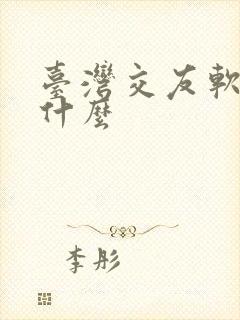 臺灣交友軟
什麼
李彤